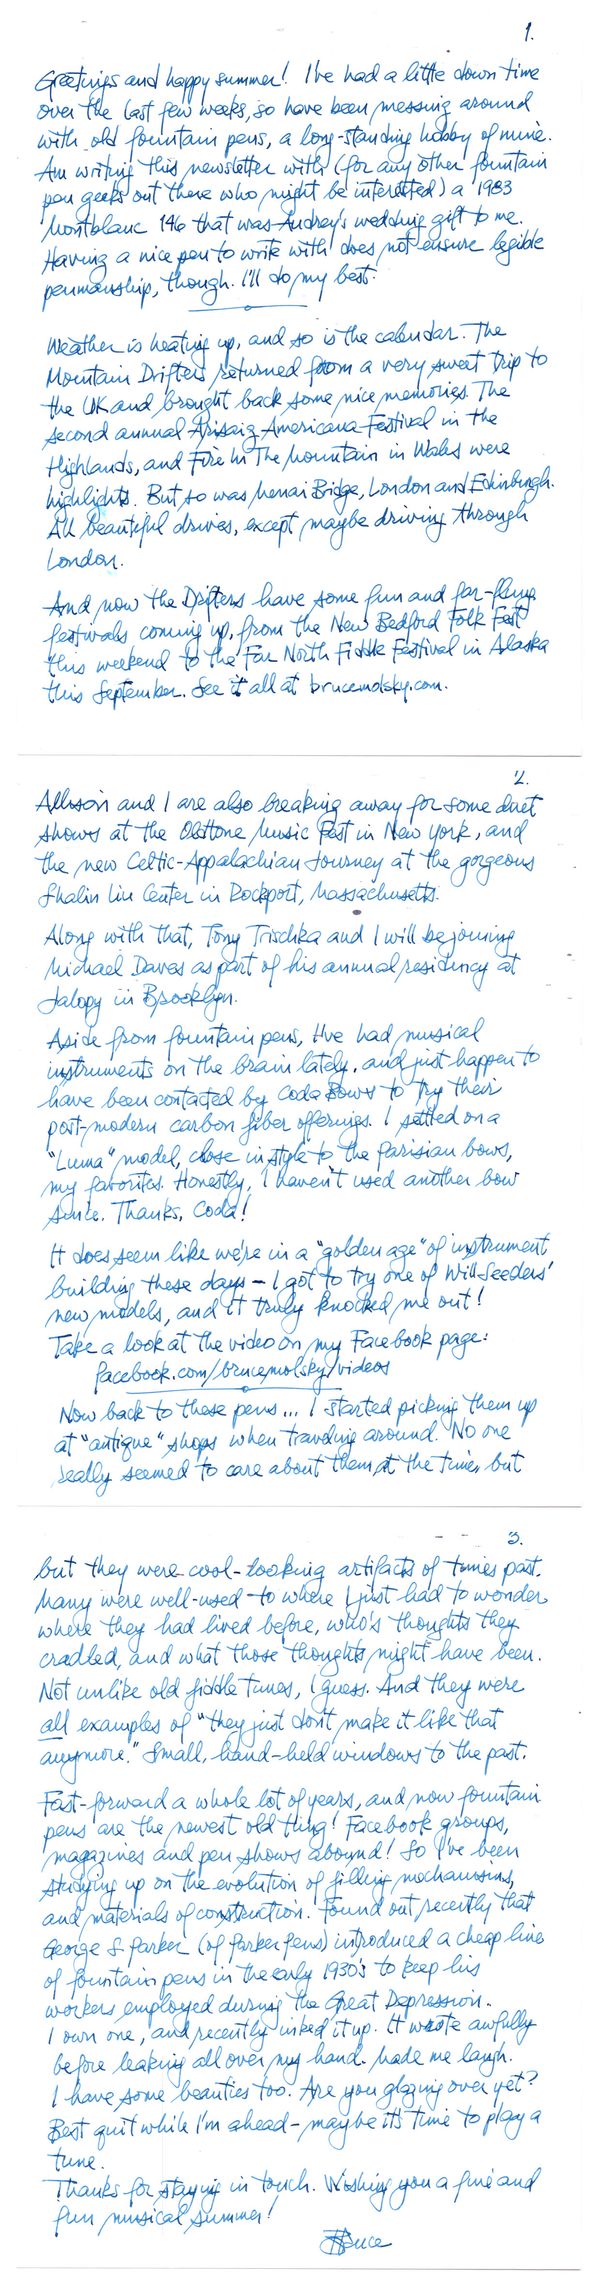 1.
Greetings and happy summer! I've had a little down time
over the last few weeks, so have been messing around
with old fountain pens, a long-standing hobby of mine.
Am writing this newsletter with (for any other fountain
pen geeks out there who might be interested) a 1983
Montblanc 146 that was Audrey's wedding gift to me.
Having a nice pen to write with does not ensure legible
penmanship, though. I'll do my best.
Weather is heating up, and so is the calendar. The
Mountain Drifters returned from a very sweet trip to
the UK and brought back some nice memories. The
second annual Arisaig Americana Festival in the
Highlands, and Fire In The Mountain in Wales were
highlights. But so was Menai Bridge, London and Edinburgh.
All beautiful drives, except maybe driving through
London.
And now the Drifters have some fun and far-flung
festivals coming up, from the New Bedford Folk Fest
this weekend to the Far North Fiddle Festival in Alaska
this September. See it all at brucemolsky.com.
2.
Allison and I are also breaking away for some duet
shows at the Oldtone Music Fest in New York, and
the new Celtic-Appalachian Journey at the gorgeous
Shalin Liu Center in Rockport, Massachusetts.
Along with that, Tony Trischka and I will be joining
Michael Daves as part of his annual residency at
Jalopy in Brooklyn.
Aside from fountain pens, I've had musical
instruments on the brain lately, and just happen to
have been contacted by Coda Bows to try their
post-modern carbon fiber offerings. I settled on a
"Luma" model, close in style to the Parisian bows,
my favorites. Honestly, I haven't used another bow
since. Thanks, Coda!
It does seem like we're in a "golden age" of instrument
building these days - I got to try one of Will Seeders'
new models, and it truly knocked me out!
Take a look at the video on my Facebook page:
facebook.com/brucemolsky/videos
Now back to these pens... I started picking them up
at "antique" shops when traveling around. No one
really seemed to care about them at the time, but
3.
but they were cool-looking artifacts of times past.
Many were well-used to where I just had to wonder
where they had lived before, who's thoughts they
cradled, and what those thoughts might have been.
Not unlike old fiddle tunes, I guess. And they were
all examples of "they just don't make it like that
anymore." Small, hand-held windows to the past.
Fast-forward a whole lot of years, and now fountain
pens are the newest old thing! Facebook groups,
magazines and pen shows abound! So I've been
studying up on the evolution of filling mechanisms,
and materials of construction. Found out recently that
George S Parker (of Parker Pens) introduced a cheap line
of fountain pens in the early 1930's to keep his
workers employed during the Great Depression.
I own one, and recently inked it up. It wrote awfully
before leaking all over my hand. Made me laugh.
I have some beauties too. Are you glazing over yet?
Best quit while I'm ahead - maybe it's time to play a
tune.
Thanks for staying in touch. Wishing you a fine and
fun musical summer!
Bruce